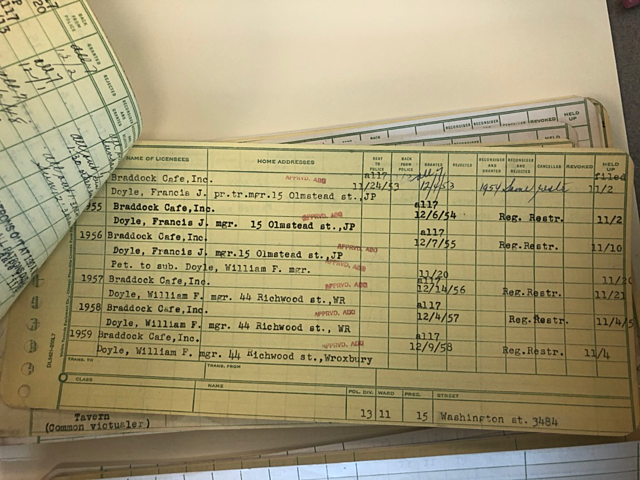 NAME OF LICENSEES HOME ADDRESSES SENT TO POLICE BACK FROM POLICE GRANTED REJECTED RECONSIDERED AND GRANTED RECONSIDERED AND REJECTED CANCELLED REVOKED HELD UP
Braddock Cafe,Inc. APPRVD. ABG all7 filed
Doyle, Francis J. pr.tr.mgr.15 Olmstead st.,JP 11/24/53 12/4/53 1954 Same/restr 11/2
55 Braddock Cafe,Inc. all7
Doyle, Francis J. mgr. 15 Olmstead st.,JP APPRVD. ABG 12/6/54 Reg. Restr. 11/2
1956 Braddock Cafe,Inc. all7
Doyle, Francis J. mgr.15 Olmstead st.,JP APPRVD. ABG 12/7/55 Reg.Restr. 11/10
Pet. to sub. Doyle, William F. mgr. APPRVD. ABG 11/20
1957 Braddock Cafe,Inc. all7
Doyle, William F. mgr. 44 Richwood st.,WR APPRVD. ABG 12/14/56 Reg.Restr. 11/21
1958 Braddock Cafe,Inc. all7
Doyle, William F. mgr. 44 Richwood st., WR APPRVD. ABG 12/4/57 Reg.Restr. 11/4/5
1959 Braddock Cafe,Inc. APPRVD. ABG all7
Doyle, William F. mgr. 44 Richwood st.,Wroxbury 12/9/58 Reg.Restr. 11/4
TRANS. TO TRANS. FROM
CLASS NAME POL. DIV. WARD PREC. STREET
13 11 15 Washington st. 3484
Tavern
(Common victusler)